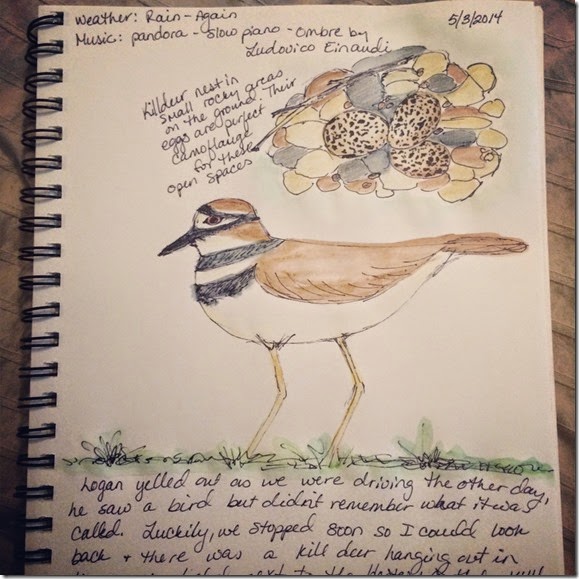 Weather: Rain-Again
5/3/2014
Music: pandora - Slow piano - Ombre by
Ludovico Einaudi
Killdeer nest in
small rocky areas
on the ground. Their
eggs are perfect
camoflauge
for these
open spaces
Logan yelled out as we were driving the other day,
he saw a bird but didn't remember what it was
called. Luckily, we stopped soon so I could look
back + there was a kill deer hanging out in